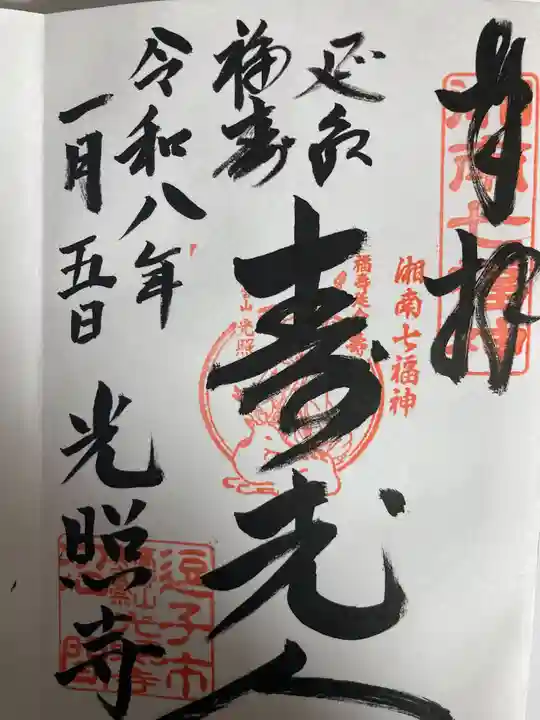 奉拝
湘南七福神
湘南七福神
延命
福寿
寿老人
令和八年
一月五日
光照寺
逗子市